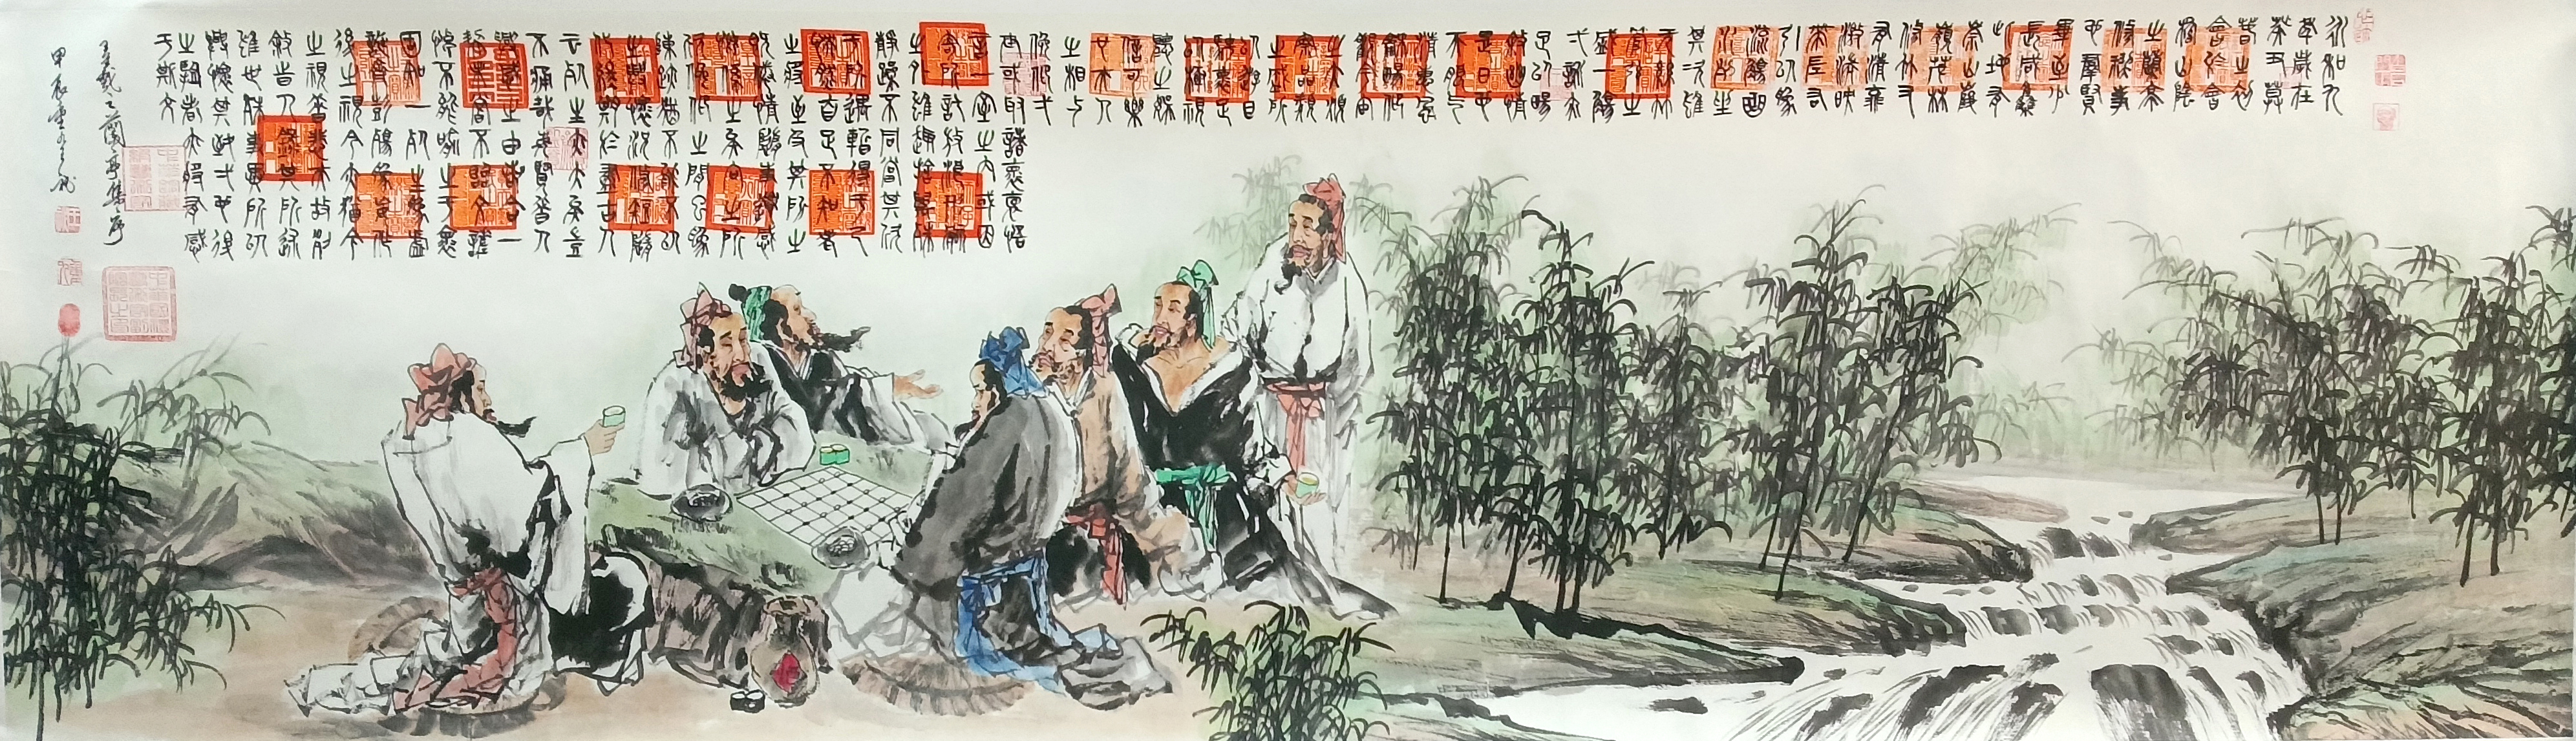 永和九
年歲在
癸丑暮
春之初
會於會
稽山陰
之蘭亭
修禊事
也羣賢
畢至少
長咸集
此地有
崇山峻
嶺茂林
修竹又
有清流
激湍映
帶左右
引以為
流觴曲
水列坐
其次雖
無絲竹
管弦之
盛一觴
一詠亦
足以暢
敘幽情
是日也
天朗气
清惠風
和暢仰
觀宇宙
之大俯
察品類
之盛所
以遊目
騁懷足
以極視
聽之娛
信可樂
也夫人
之相與
俯仰一
世或取諸懷抱悟
言一室之內或因
寄所託放浪形骸
之外雖趣捨萬殊
靜躁不同當其欣
於所遇暫得於己
快然自足不知老
之將至及其所之
既倦情隨事遷感
慨係之矣向之所
欣俛仰之間已為
陳跡猶不能不以
之興懷況修短隨
化終期於盡古人
云死生亦大矣豈
不痛哉每覽昔人
興感之由若合一
契未嘗不臨文嗟
悼不能喻之於懷
固知一死生為虛
誕齊彭殤為妄作
後之視今亦猶今
之視昔悲夫故列
敘時人錄其所述
雖世殊事異所以
興懷其致一也後
之覽者亦將有感
於斯文
王羲之蘭亭集序
甲辰